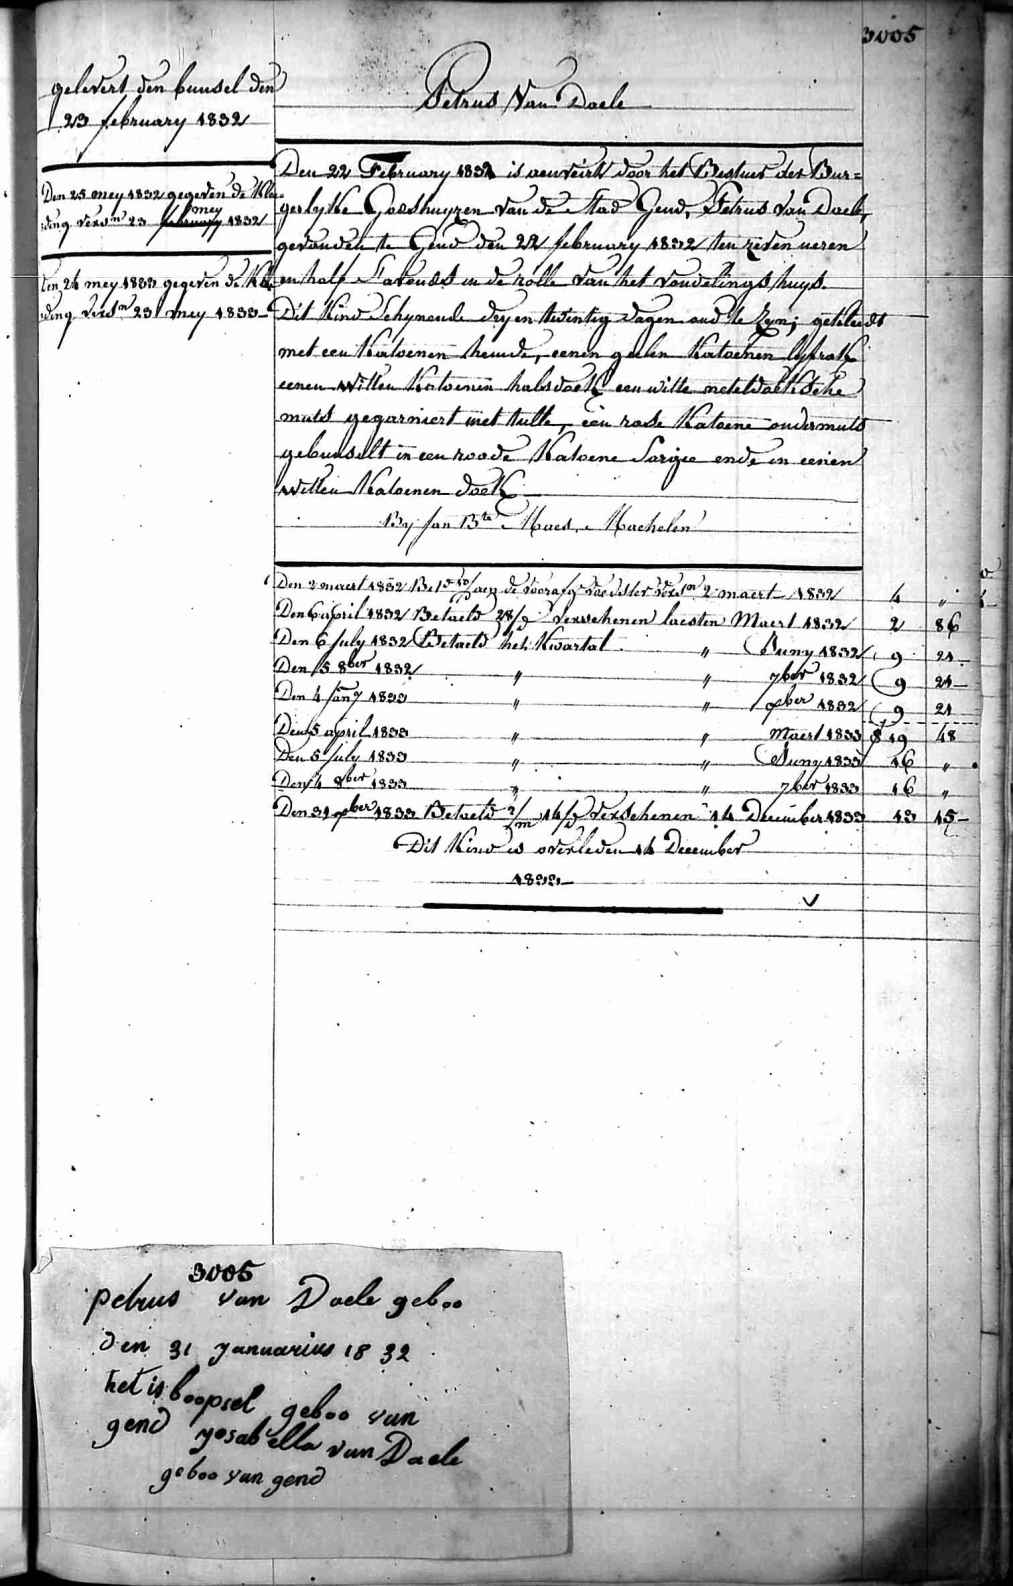 3005
gelevert den bunsel den
23 february 1832
Den 25 mey 1832 gegeven de Klee=
ding versn 23 february mey 1832
Den 24 mey 1833 gegeven de Klee
ding versn 23 mey 1833
Petrus Van Daele
Den 22 February 1832 is aenveird door het Bestuer der Bur=
gerlyke Godshuyzen van de Stad Gend, Petrus Van Daele,
gevonden te Gend den 22 february 1832 ten zeven ueren
en half s'avonds in de rolle van het vondelingshuys.
Dit Kind schynende dry en twintig dagen oud te zyn; gekleedt
met een Katoenen hemde, eenen geelen Katoenen lyfrok
eenen witten Katoenen halsdoek een witte neteldoeksche
muts gegarniert met tulle, een rode Katoene ondermuts
gebunselt in een roode Katoene Sargie ende in eenen
witten Katoenen doek
By Jan Bte Maes, Machelen
Den 2 maert 1832 Bet aen de voedster versn 2 maert 1832 4 "
Den 6 april 1832 Betaeld 28/d verschenen laesten Maert 1832 2 86
Den 6 july 1832 Betaeld het Kwartal " Juny 1832 9 21
Den 5 8ber 1832 " " 7ber 1832 9 21
Den 4 Jany 1833 " " xber 1832 9 21
Den 5 april 1833 " " Maert 1833 19 48
Den 5 july 1833 " " Juny 1833 16 "
Den 4 8ber 1833 " " 7ber 1833 16 "
Den 31 xber 1833 Betaeld 2/m 14/d verschenen 14 December 1833 13 15
Dit Kind is overleden 14 December
1833
3005
petrus van Daele geboo
den 31 januarius 1832
het is boopsel geboo van
gend yosabella van Daele
geboo van gend